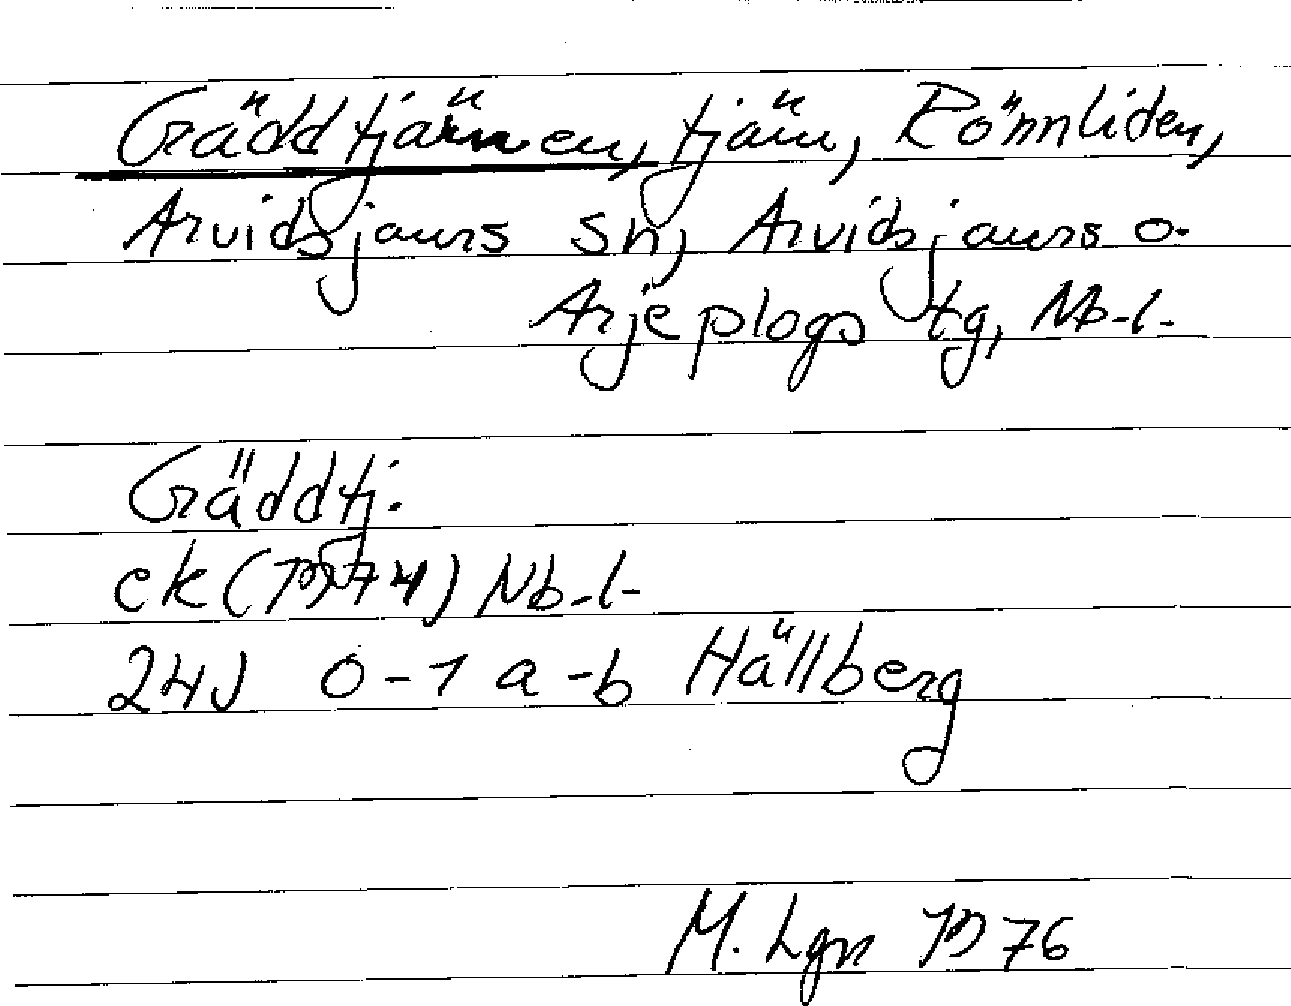 Gäddtjärnen, tjärn, Rönnliden,
Arvidsjaurs sn, Arvidsjaurs o.
Arjeplogs tg, Nb.l.
Gäddtj.
ek (1974) Nb.l.
24J 0-1 a-b Hällberg
M. Lgn 1976